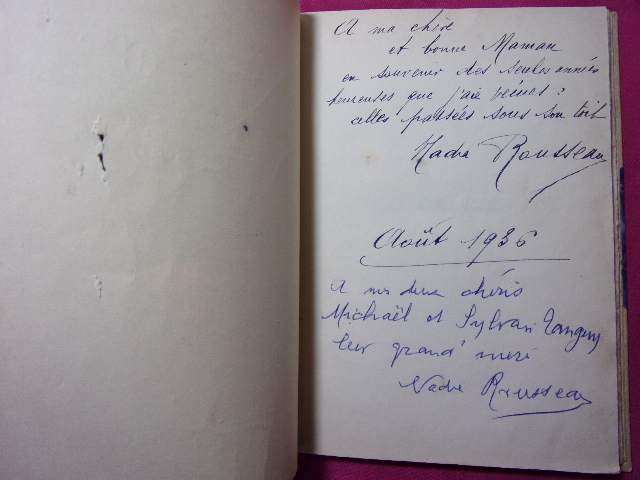 A ma chère
et bonne Maman
en souvenir des seules années
heureuses que j'aie vécues :
celles passées sous son toit
Nadia Rousseau
Août 1936
A mes deux chéris
Michaël et Sylvan Tanguy
leur grand' mère
Nadia Rousseau